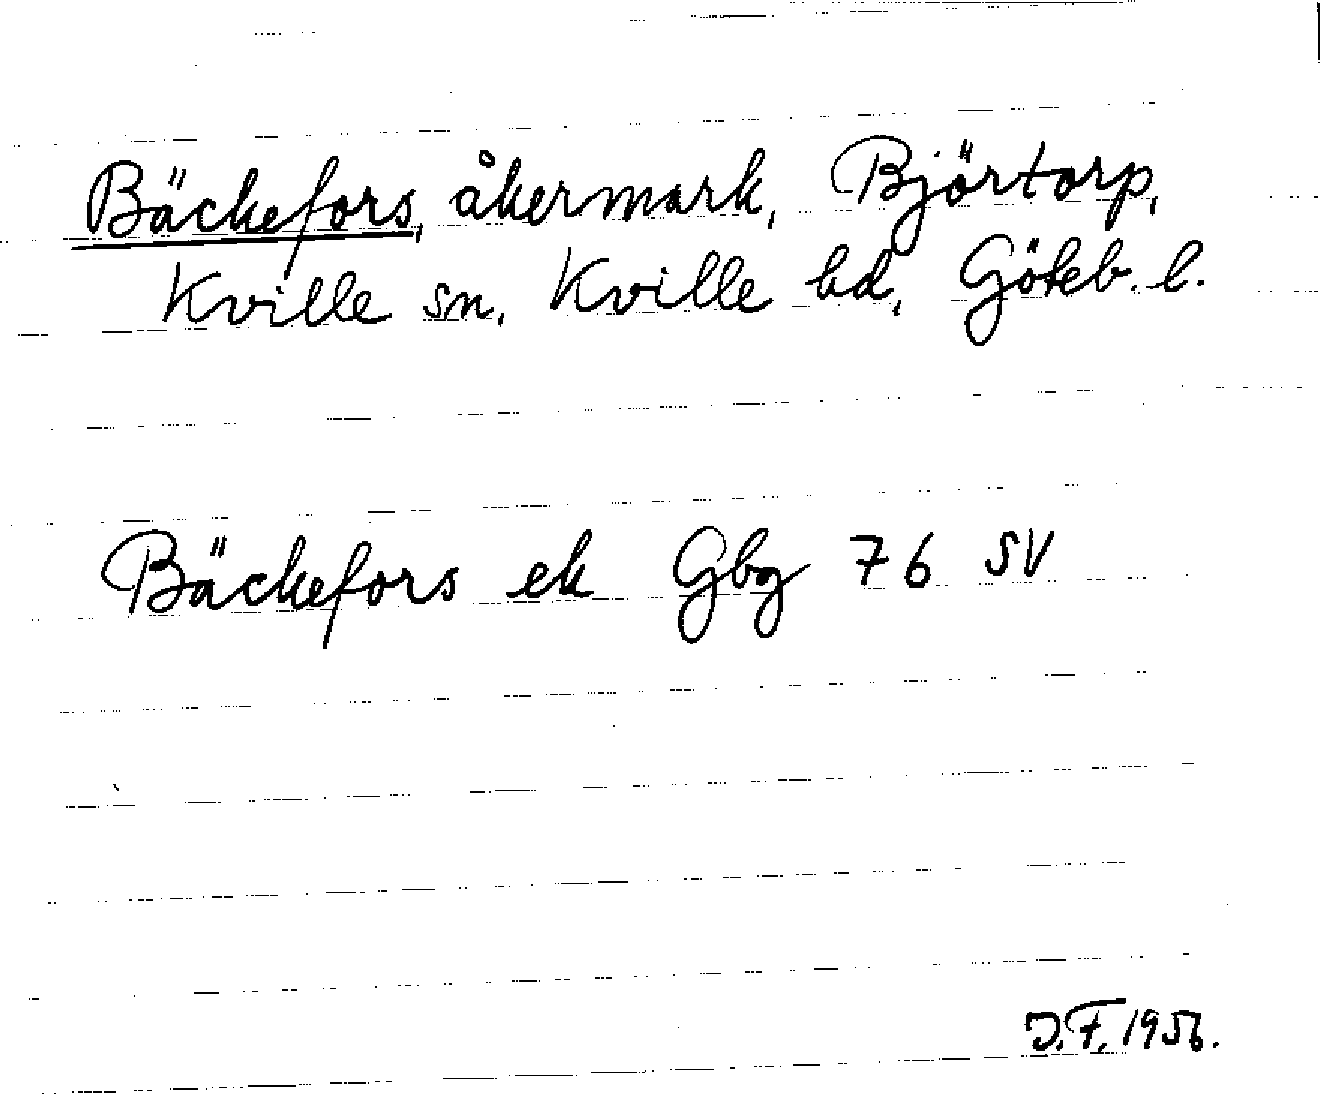 Bäckefors, åkermark, Björtorp,
Kville sn, Kville hd, Göteb. l.
Bäckefors ek Gbg 76 SV
J.F. 1956.